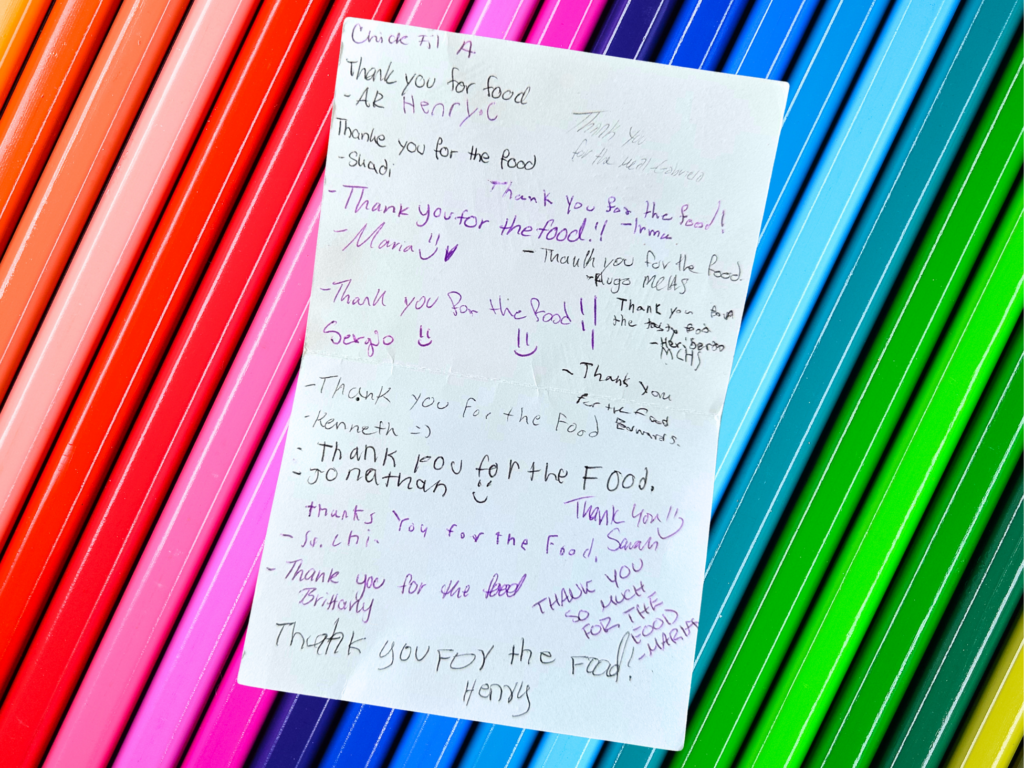 Chick Fil A
Thank you for food
- AR Henry.C
Thank You
for the
Thanke you for the food
- Suadi
Thank you for the food!
- Irma
- Thank you for the food!!
- Maria
- Thank you for the food.
- Hugo MCHS
- Thank you for the food!!
Sergio
Thank you for
the tasty food
- Heriberto
MCHS
- Thank you
for the Food
- Thank you For the Food
- Kenneth =)
- Thank You for the Food.
- Jonathan
Thank You
Sarah
thanks You for the Food.
- Thank you for the food
Brittany
THANK YOU
SO MUCH
FOR THE
FOOD
- MARIA
Thank you For the Food!
Henry